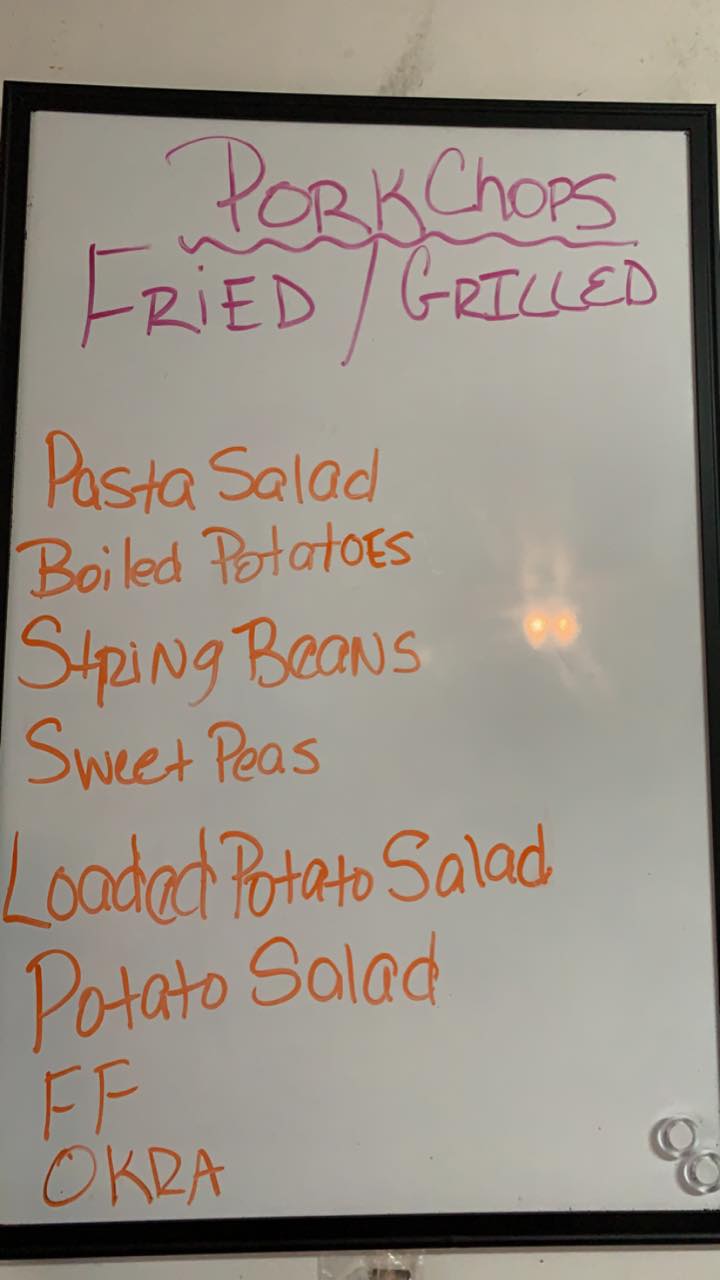 PORK ChOPS
FRiED / GRILLED
Pasta Salad
Boiled PotatoES
StRiNg BeaNS
Sweet Peas
Loaded Potato Salad
Potato Salad
FF
OKRA